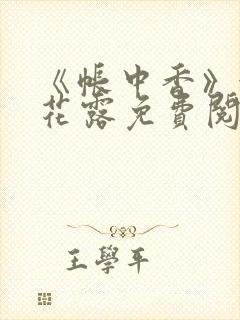 《帐中香》
花露免費閱
王學平